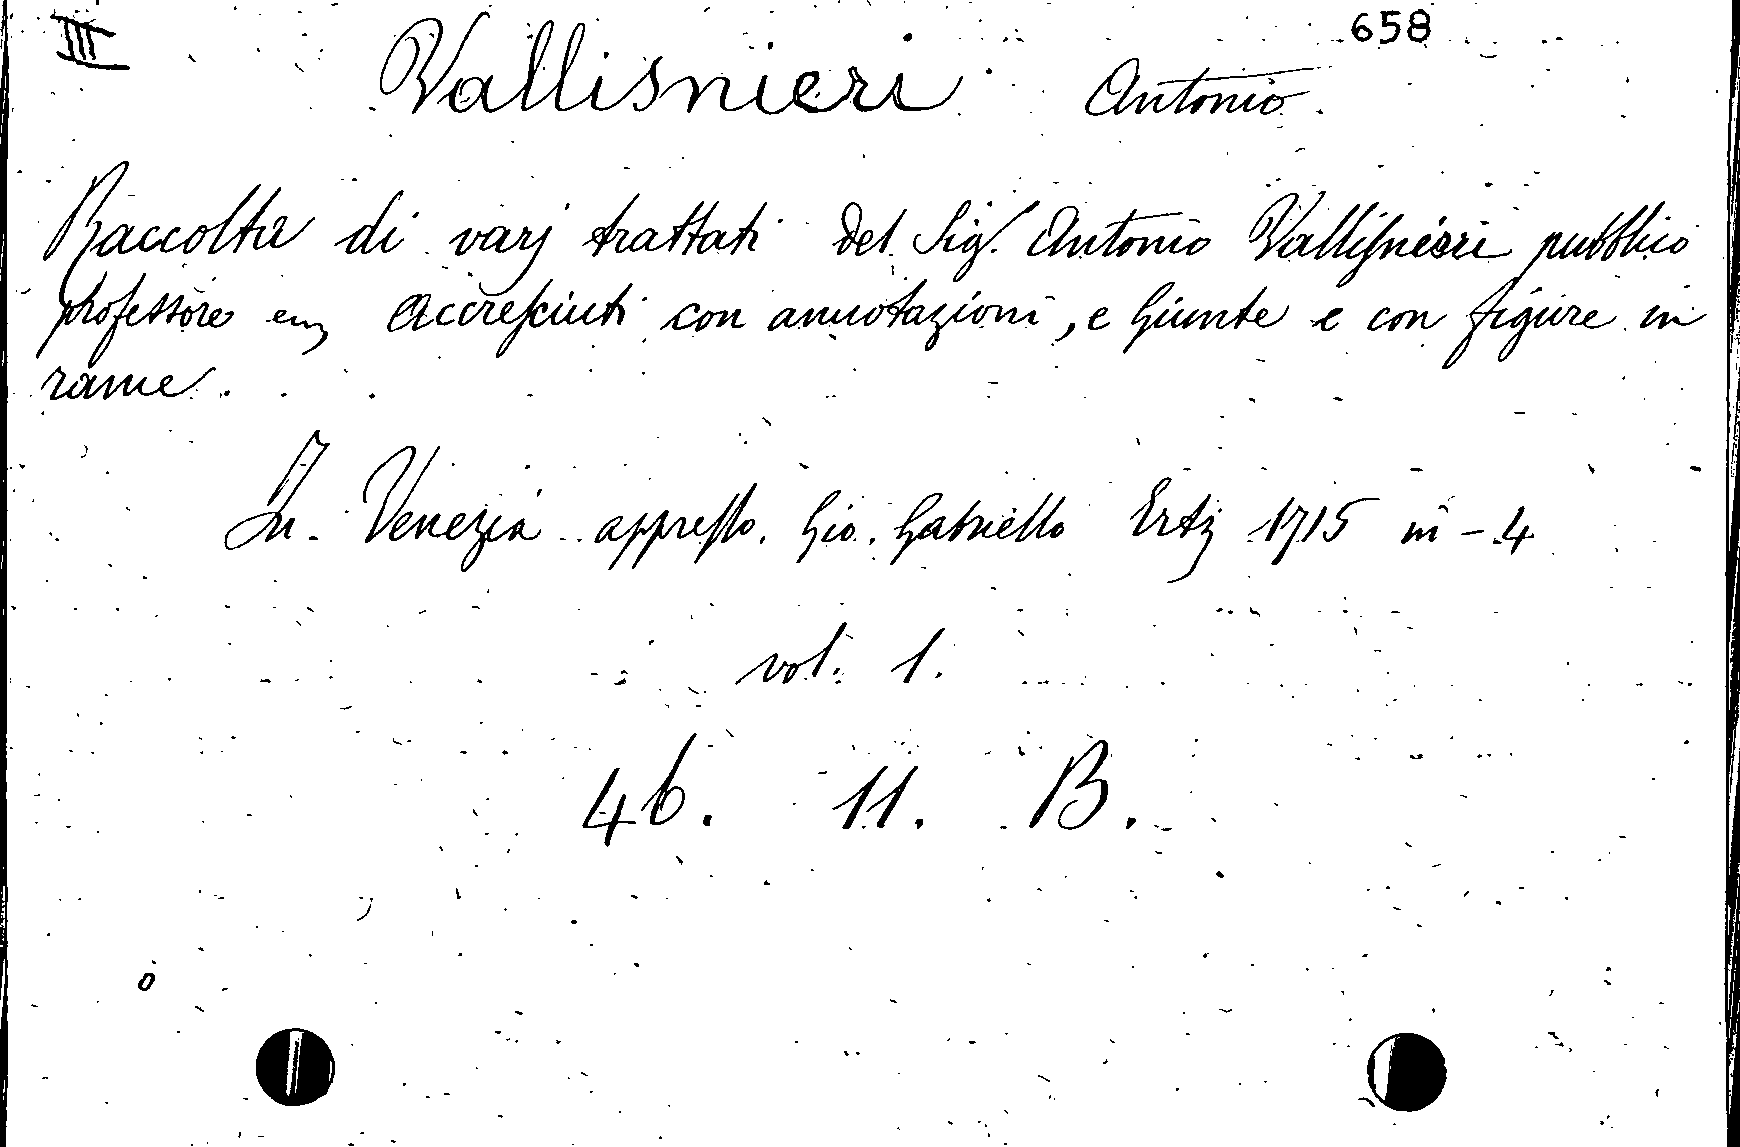 III 658
Vallisnieri Antonio.
Raccolta di varj trattati del Sig. Antonio Vallisnieri pubblico
professore enz accresciuti con annotazioni, e Giunte e con figure in
rame.
In Venezia appresso Gio. Gabriello Ertz 1715 in-4
vol. 1.
46. 11. B.